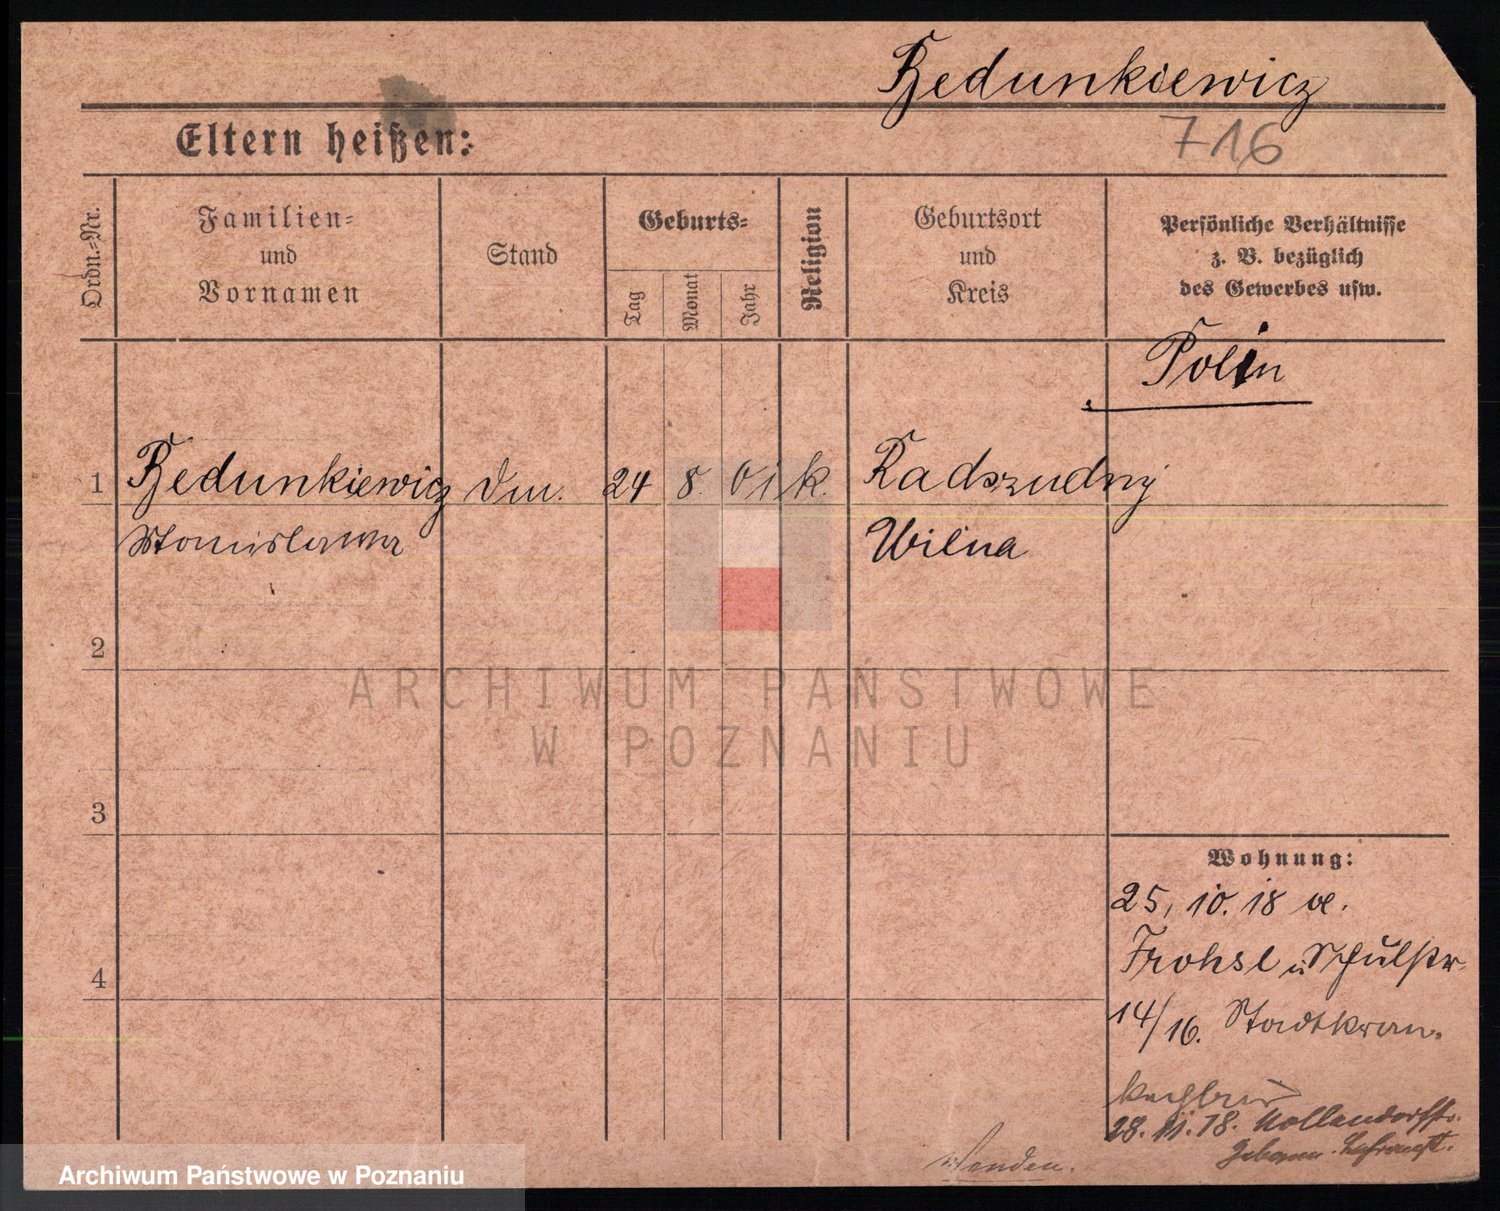 Bedunkiewicz
Eltern heißen:
716
Ordn.=Nr.
Familien=
und
Vornamen
Stand
Geburts=
Tag
Monat
Jahr
Religion
Geburtsort
und
Kreis
Persönliche Verhältnisse
z. B. bezüglich
des Gewerbes usw.
Polin
1
Bedunkiewicz
24
8.
01
k.
Radszudny
Stanislawa
Wilna
2
ARCHIWUM PAŃSTWOWE
W POZNANIU
3
Wohnung:
25, 10. 18
Schulstr.
4
14/16. Stadtkran.
28. 11. 18. Nollendorfstr.
wenden.
Archiwum Państwowe w Poznaniu